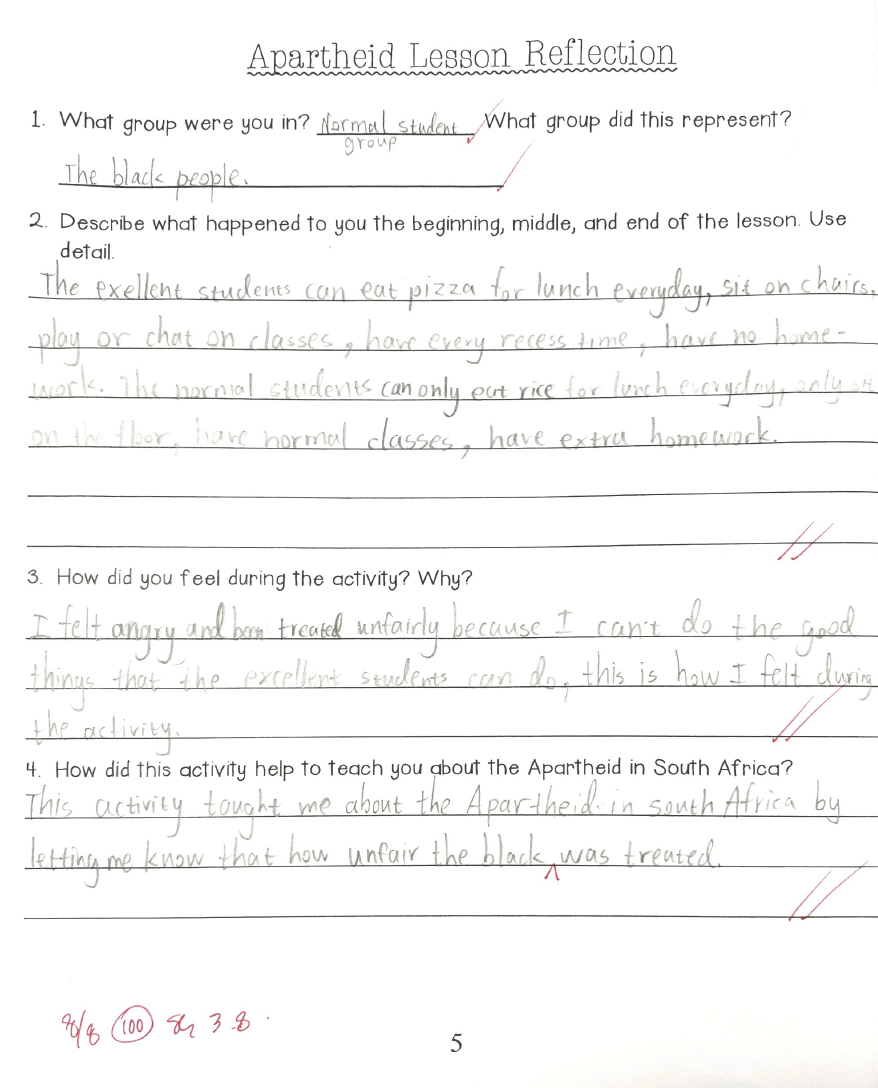 Apartheid Lesson Reflection
1. What group were you in? Normal student What group did this represent?
group
The black people.
2. Describe what happened to you the beginning, middle, and end of the lesson. Use
detail.
The exellent students can eat pizza for lunch everyday, sit on chairs,
play or chat on classes, have every recess time, have no home-
work. The normal students can only eat rice for lunch everyday, only sit
on the floor, have normal classes, have extra homework.
3. How did you feel during the activity? Why?
I felt angry and been treated unfairly because I can't do the good
things that the excellent students can do, this is how I felt during
the activity.
4. How did this activity help to teach you about the Apartheid in South Africa?
This activity tought me about the Apartheid in south Africa by
letting me know that how unfair the black was treated.
8/8 100 3.8
5